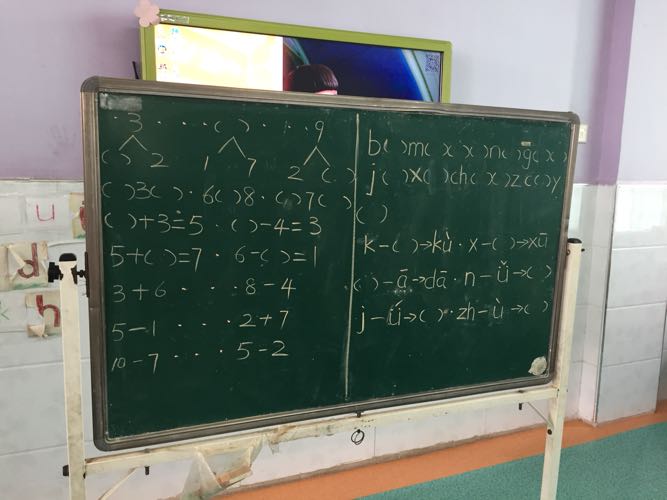 3 · · · ( ) · · · 9
( ) 2 1 7 2 ( )
( )3( ) · 6( )8 · ( )7( )
( )+3=5 · ( )-4=3
5+( )=7 · 6-( )=1
3+6 · · · 8-4
5-1 · · · 2+7
10-7 · · · 5-2
b( )m( )( )n( )g( )( )
j( )x( )ch( )( )z c( )y
( )
k-( )→kù · x-( )→xū
( )-ā→dā · n-ǚ→( )
j-ǘ→( ) · zh-ù→( )
u
d
h